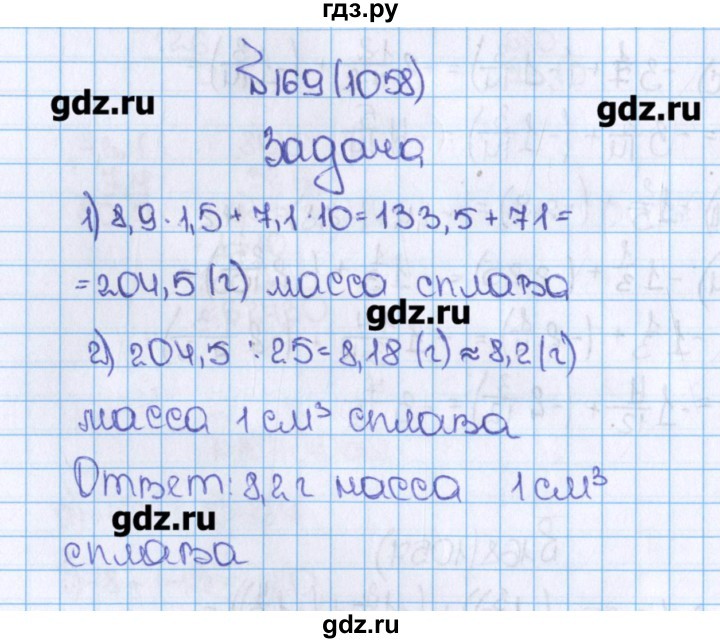 гдз.ру
В 169 (1058)
gdz.ru
gdz.ru
Задача
1) 8,9 · 1,5 + 7,1 · 10 = 133,5 + 71 =
= 204,5 (г) масса сплава
gdz.ru
2) 204,5 : 25 = 8,18 (г) ≈ 8,2 (г)
масса 1 см³ сплава
Ответ: 8,2 г масса 1 см³
gdz.ru
сплава
gdz.ru